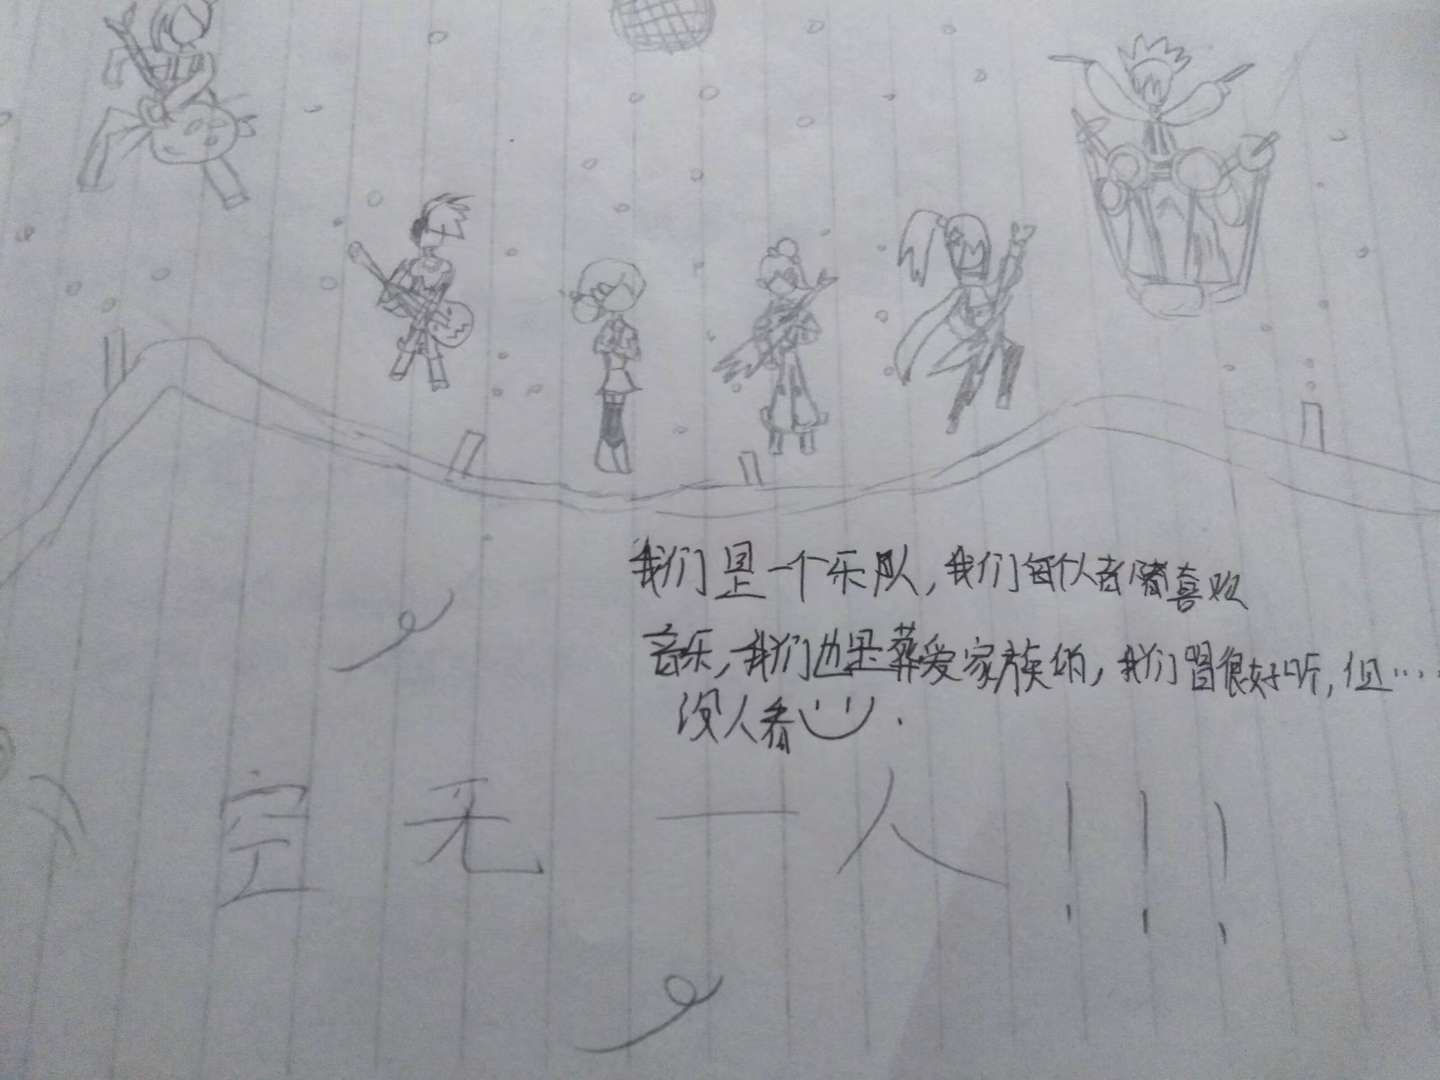 我们是一个乐队，我们每个人都喜欢
音乐，我们也是葬爱家族的，我们唱很好听，但…
没人看
空无一人！！！